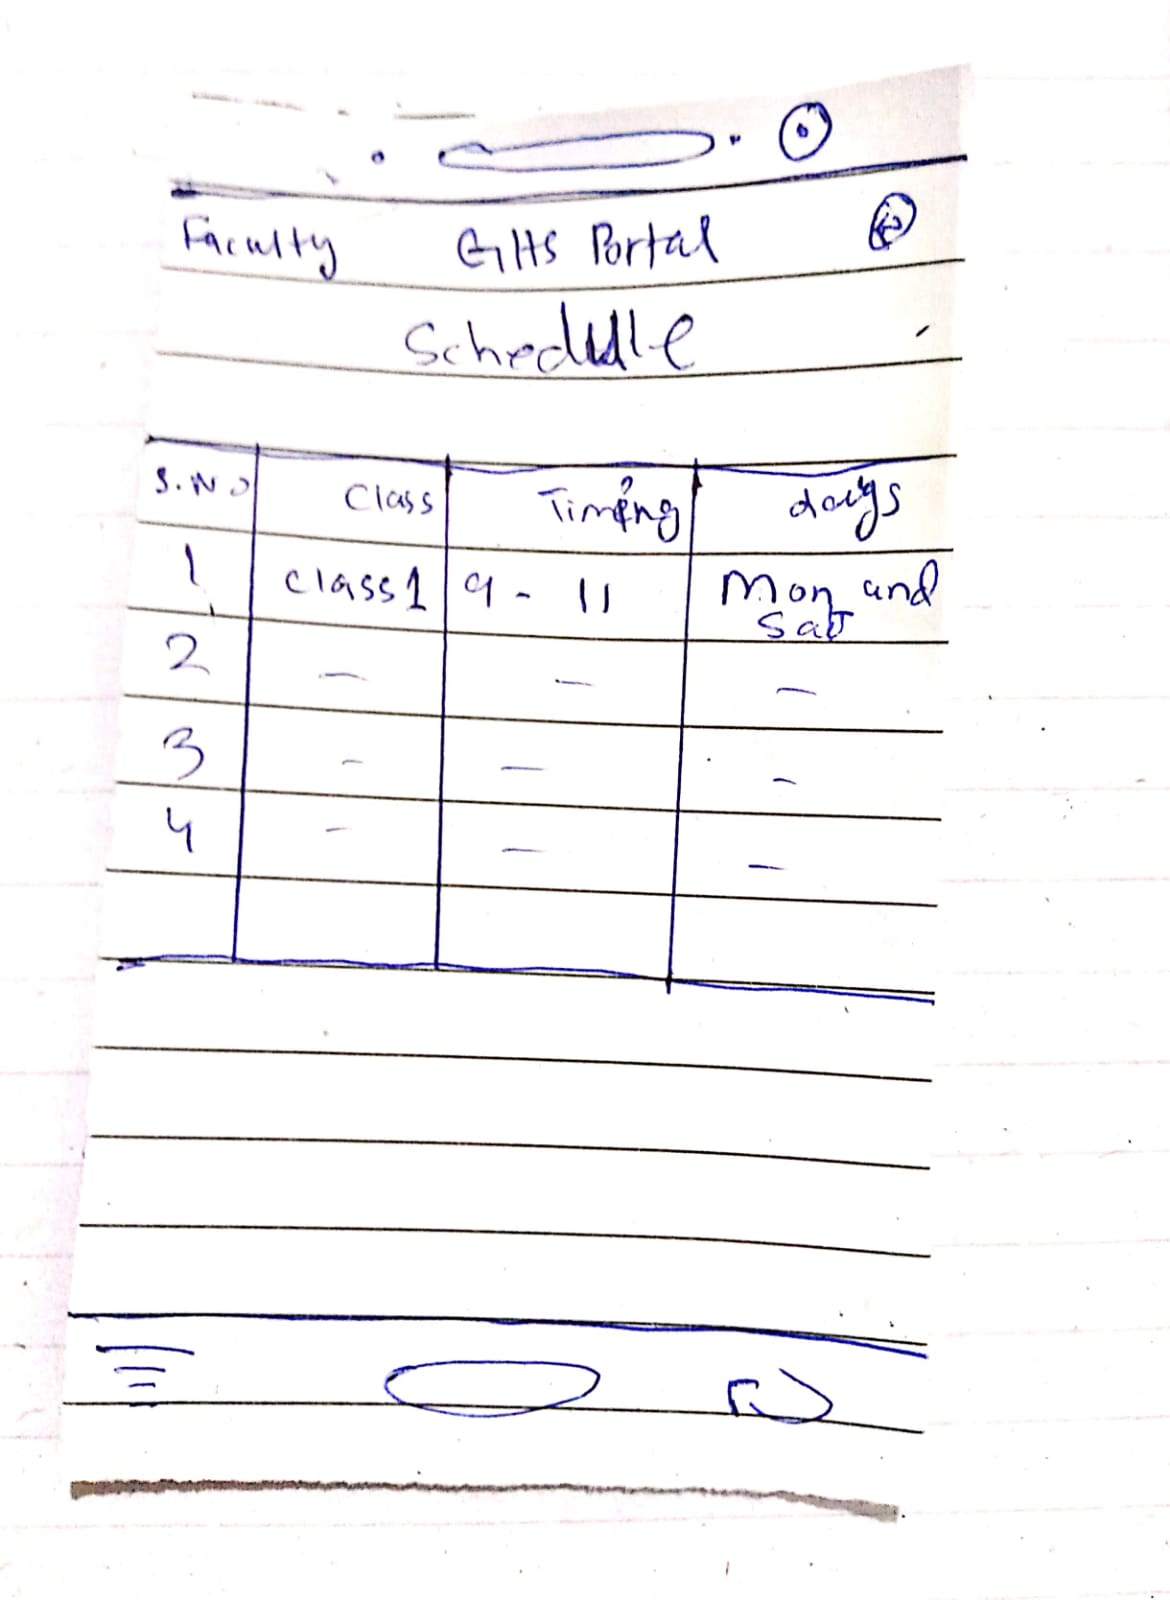 Faculty GHS Portal
Schedule
S.No Class Timing days
1 Class 1 9 - 11 Mon and
Sat
2 - - -
3 - - -
4 - - -